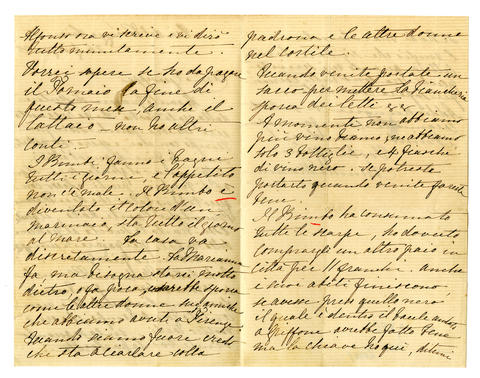 Alfonso ora vi scrive e vi dirà
tutto minutamente.
Vorrei sapere se ho da pagare
il Fornaio la fine di
questo mese, anche il
Lattaio – non ho altri
conti.
I Bimbi fanno i bagni
tutti i giorni, e l'appetito
non c'è male. Il Bimbo è
diventato il colore d'un
marinaio, sta tutto il giorno
al mare. La casa va
discretamente. La Marianna
fa, ma bisogna starci molto
dietro, o fa poco,
come le altre donne
che abbiamo avuti a Firenze.
Quando siamo fuori credo
che sta a ciarlare colla
padrona e le altre donne
nel cortile.
Quando venite portate un
sacco per mettere la biancheria
sporca dei letti
A momenti non abbiamo
più vino, ne abbiamo
solo 3 bottiglie, e 4 fiaschi
di vino nero. Se potreste
portarlo quando venite fareste
bene.
Il Bimbo ha consumato
tutte le scarpe, ho dovuto
comprargli un altro paio in
città per 11 franchi. Anche
i suoi abiti finiscono
se avesse preso quello nero
il quale è dentro il baule
a Griffone avrebbe fatto bene
ma la chiave è qui,